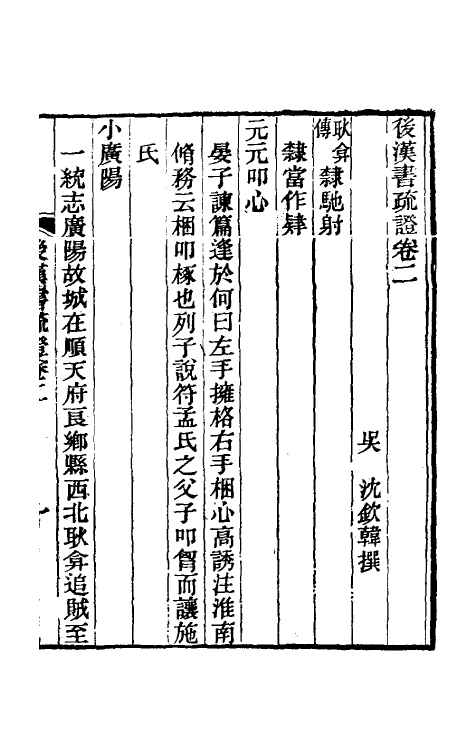 後漢書疏證卷二
吳 沈欽韓撰
耿弇傳 隸馳射
隸當作肄
元元叩心
晏子諫篇逢於何曰左手擁格右手梱心高誘注淮南
脩務云梱叩椓也列子說符孟氏之父子叩胷而讓施
氏
小廣陽
一統志廣陽故城在順天府良鄉縣西北耿弇追賊至
後漢書疏證卷二
一